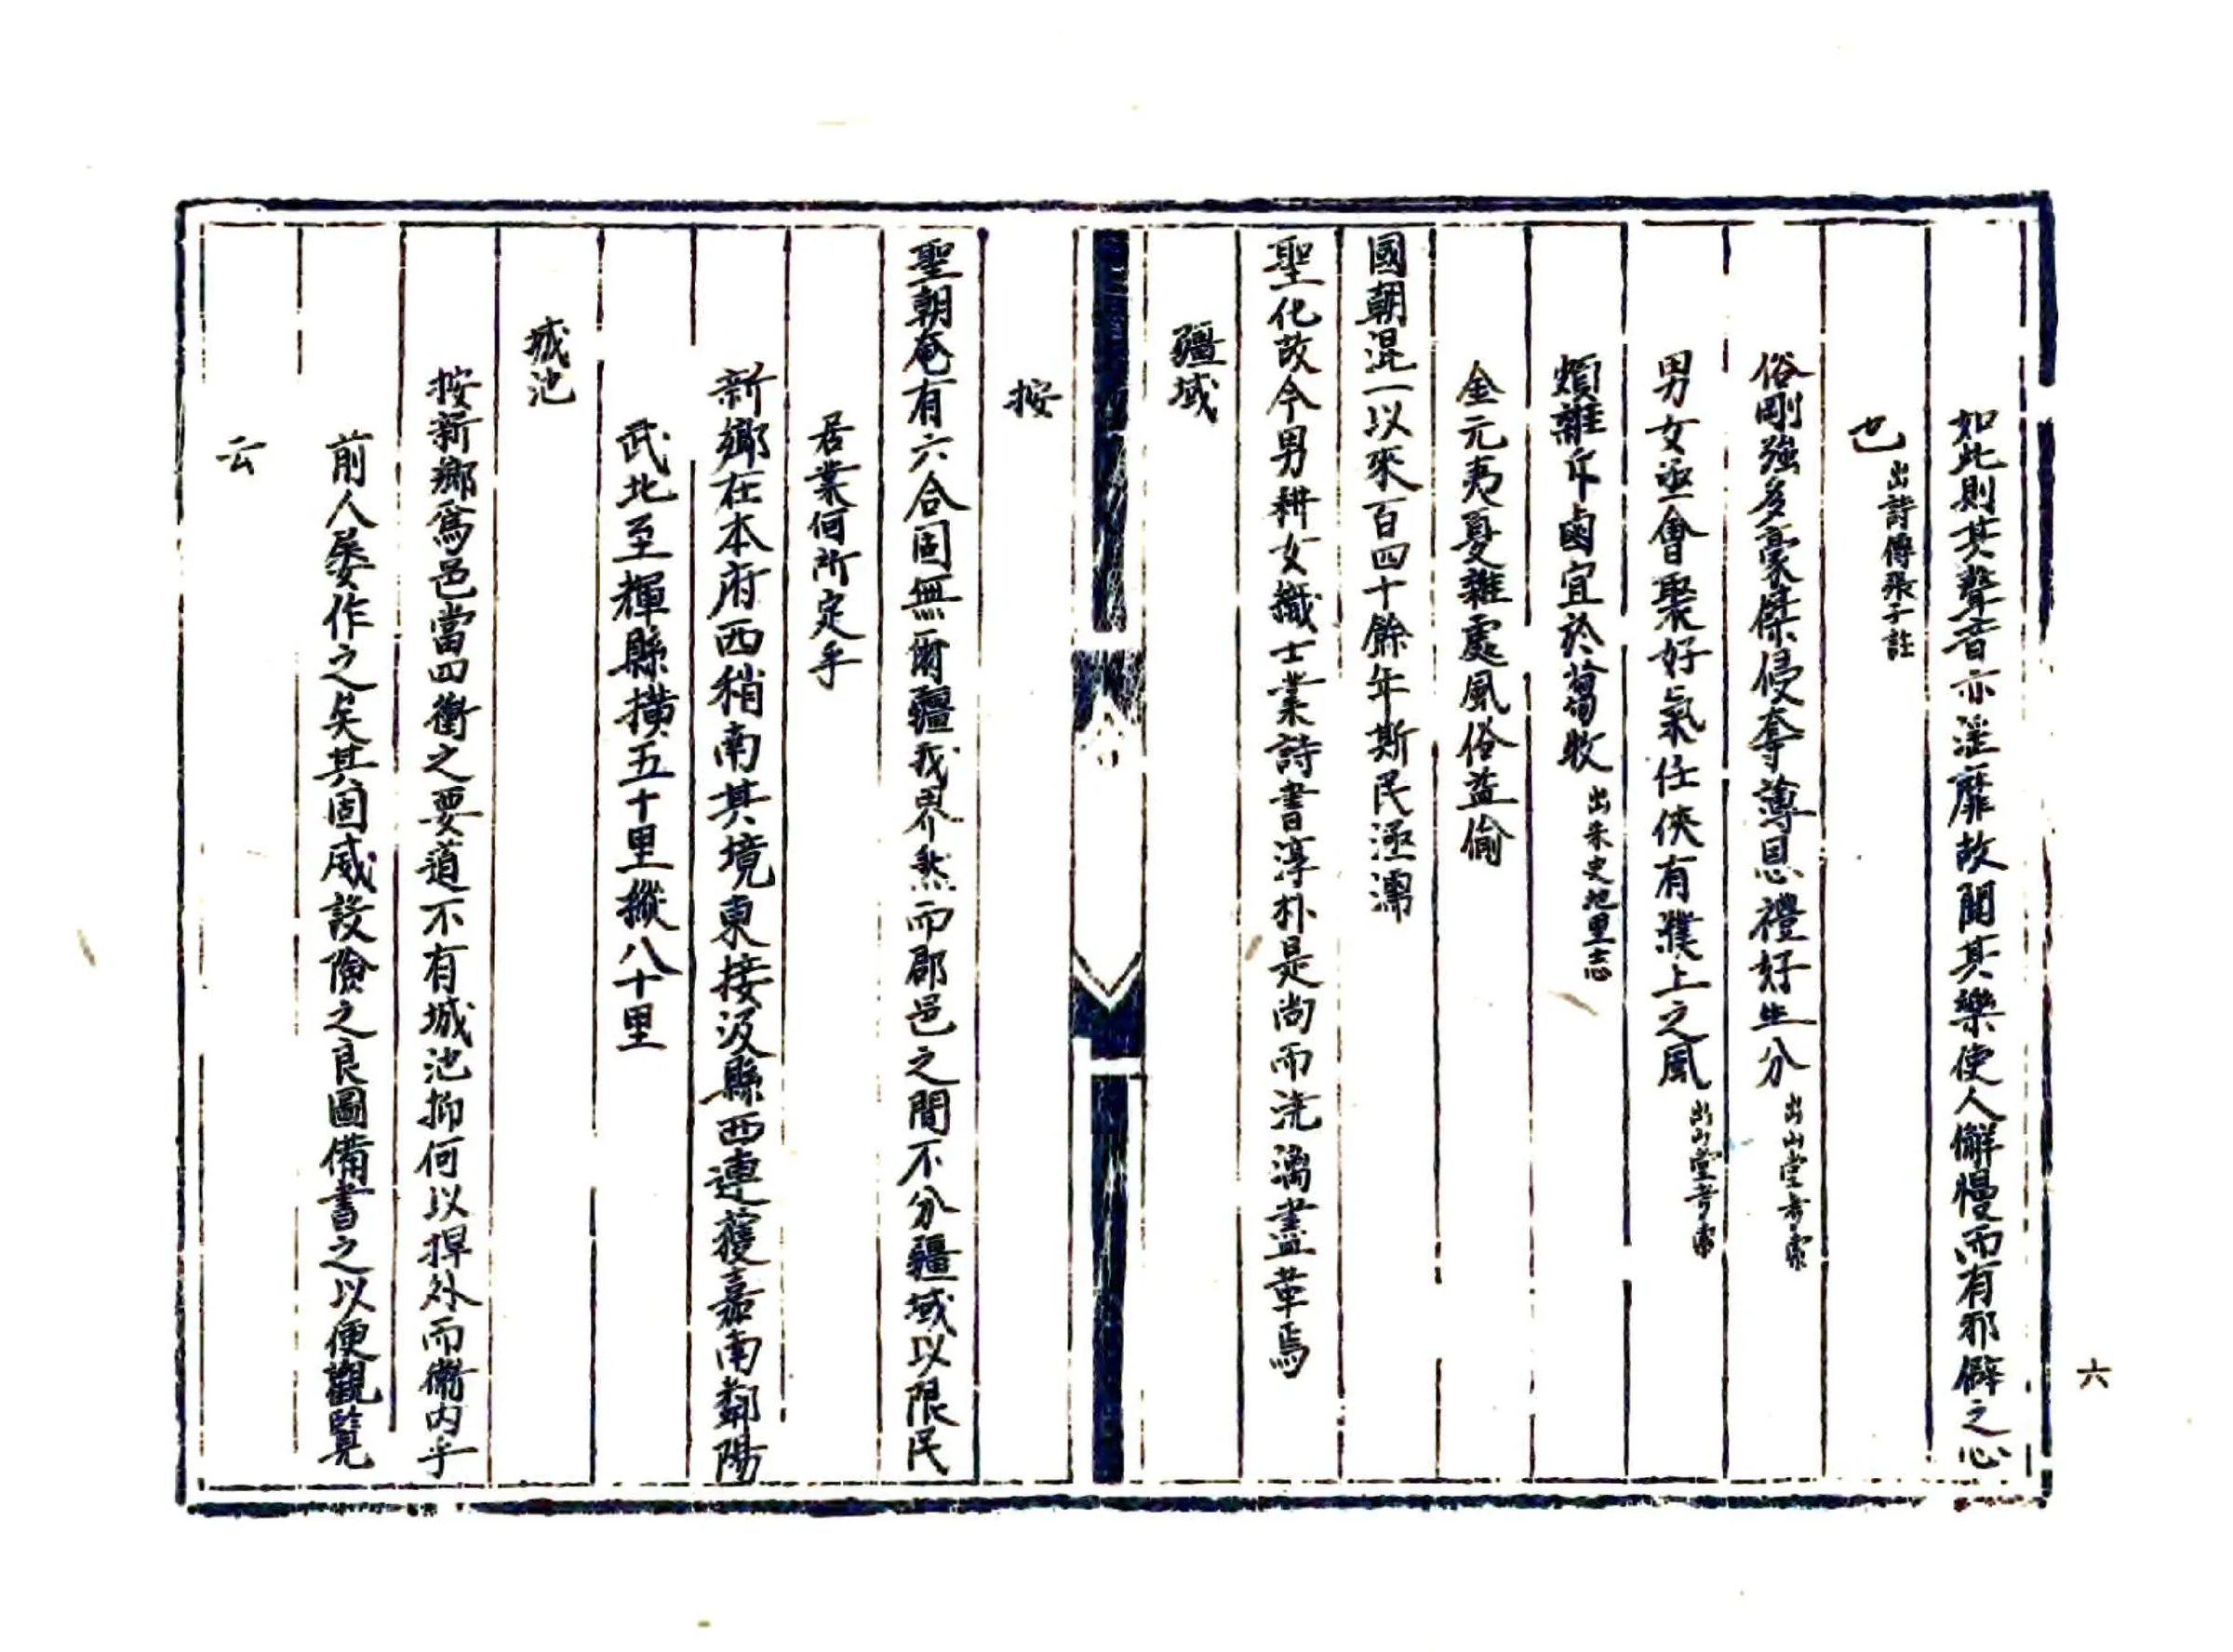 如此則其聲音亦淫靡故聞其樂使人懈慢而有邪僻之心
也出詩傳張子註
俗剛強多豪傑侵奪薄恩禮好生分出山堂考索
男女亟會聚好氣任俠有濮上之風出山堂考索
頻雜斥鹵宜於蒭牧出宋史地里志
金元夷夏雜處風俗益偷
國朝混一以來百四十餘年斯民涵濡
聖化故今男耕女織士業詩書淳朴是尚而澆漓盡革焉
疆域
按
聖朝奄有六合固無爾疆我界然而郡邑之間不分疆域以限民
居業何所定乎
新鄉在本府西稍南其境東接汲縣西連獲嘉南鄰陽
武北至輝縣橫五十里縱八十里
城池
按新鄉為邑當四衝之要道不有城池抑何以捍外而衛內乎
前人屢作之矣其固威設險之良圖備書之以便觀覽
云
六